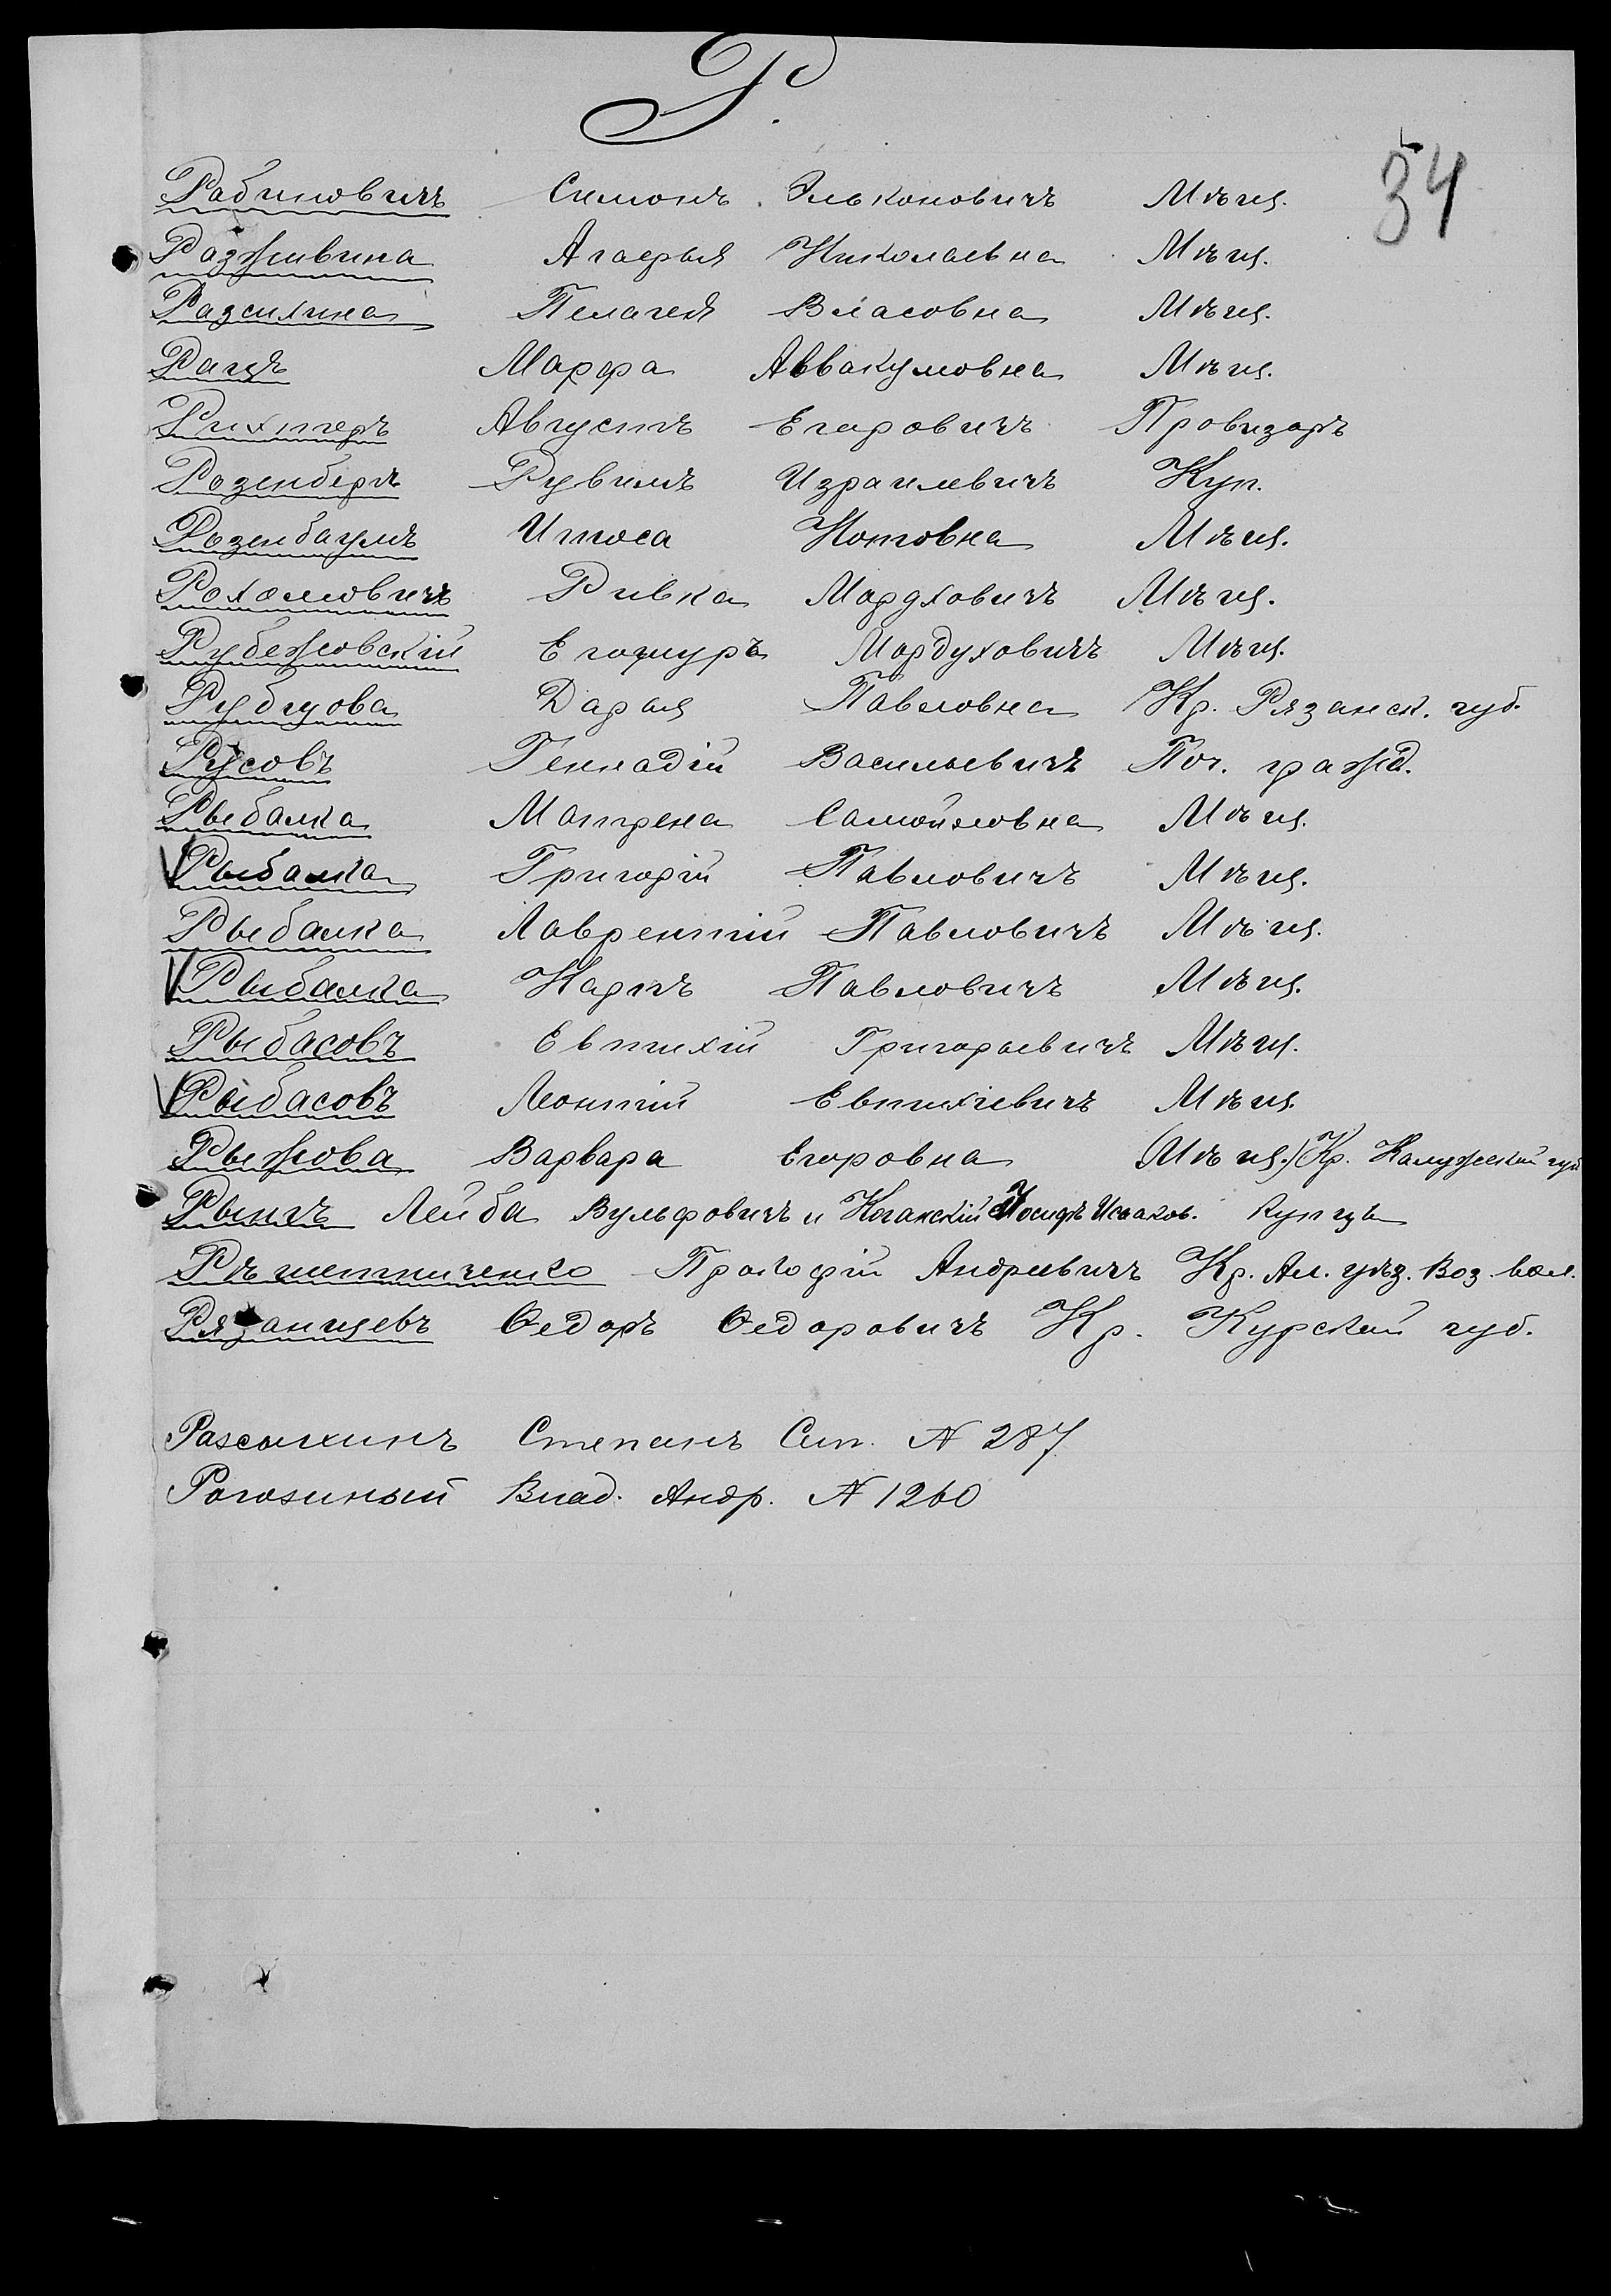 Р.
34
Рабиновичъ Симонъ Эльконовичъ Мѣщ.
Разживина Агафья Николаевна Мѣщ.
Разсихина Пелагея Власовна Мѣщ.
Рацъ Марфа Аввакумовна Мѣщ.
Рихтеръ Августъ Егоровичъ Провизоръ
Розенбергъ Рувимъ Израилевичъ Куп.
Розенбаумъ Итоса Нотовна Мѣщ.
Рохомовичъ Ривка Мордховичъ Мѣщ.
Рубежовскій Мордуховичъ Мѣщ.
Рубцова Дарья Павловна Кр. Рязанск. губ.
Русовъ Геннадій Васильевичъ Поч. гражд.
Рыбалка Матрена Самойловна Мѣщ.
Рыбалка Григорій Павловичъ Мѣщ.
Рыбалка Лаврентій Павловичъ Мѣщ.
Рыбалка Карпъ Павловичъ Мѣщ.
Рыбасовъ Евтихій Григорьевичъ Мѣщ.
Рыбасовъ Леонтій Евтихіевичъ Мѣщ.
Рыжова Варвара Егоровна (Мѣщ.) Кр. Калужской губ.
Лейба Вульфовичъ и Коганскій Іосифъ Исааков. Купцы
Рѣшетниченко Прокофій Андреевичъ Кр. Ал. уѣз. Воз. вол.
Рязанцевъ Ѳедоръ Ѳедоровичъ Кр. Курской губ.
Разсыхинъ Степанъ Ст. № 287
Рогозиный Влад. Андр. № 1260